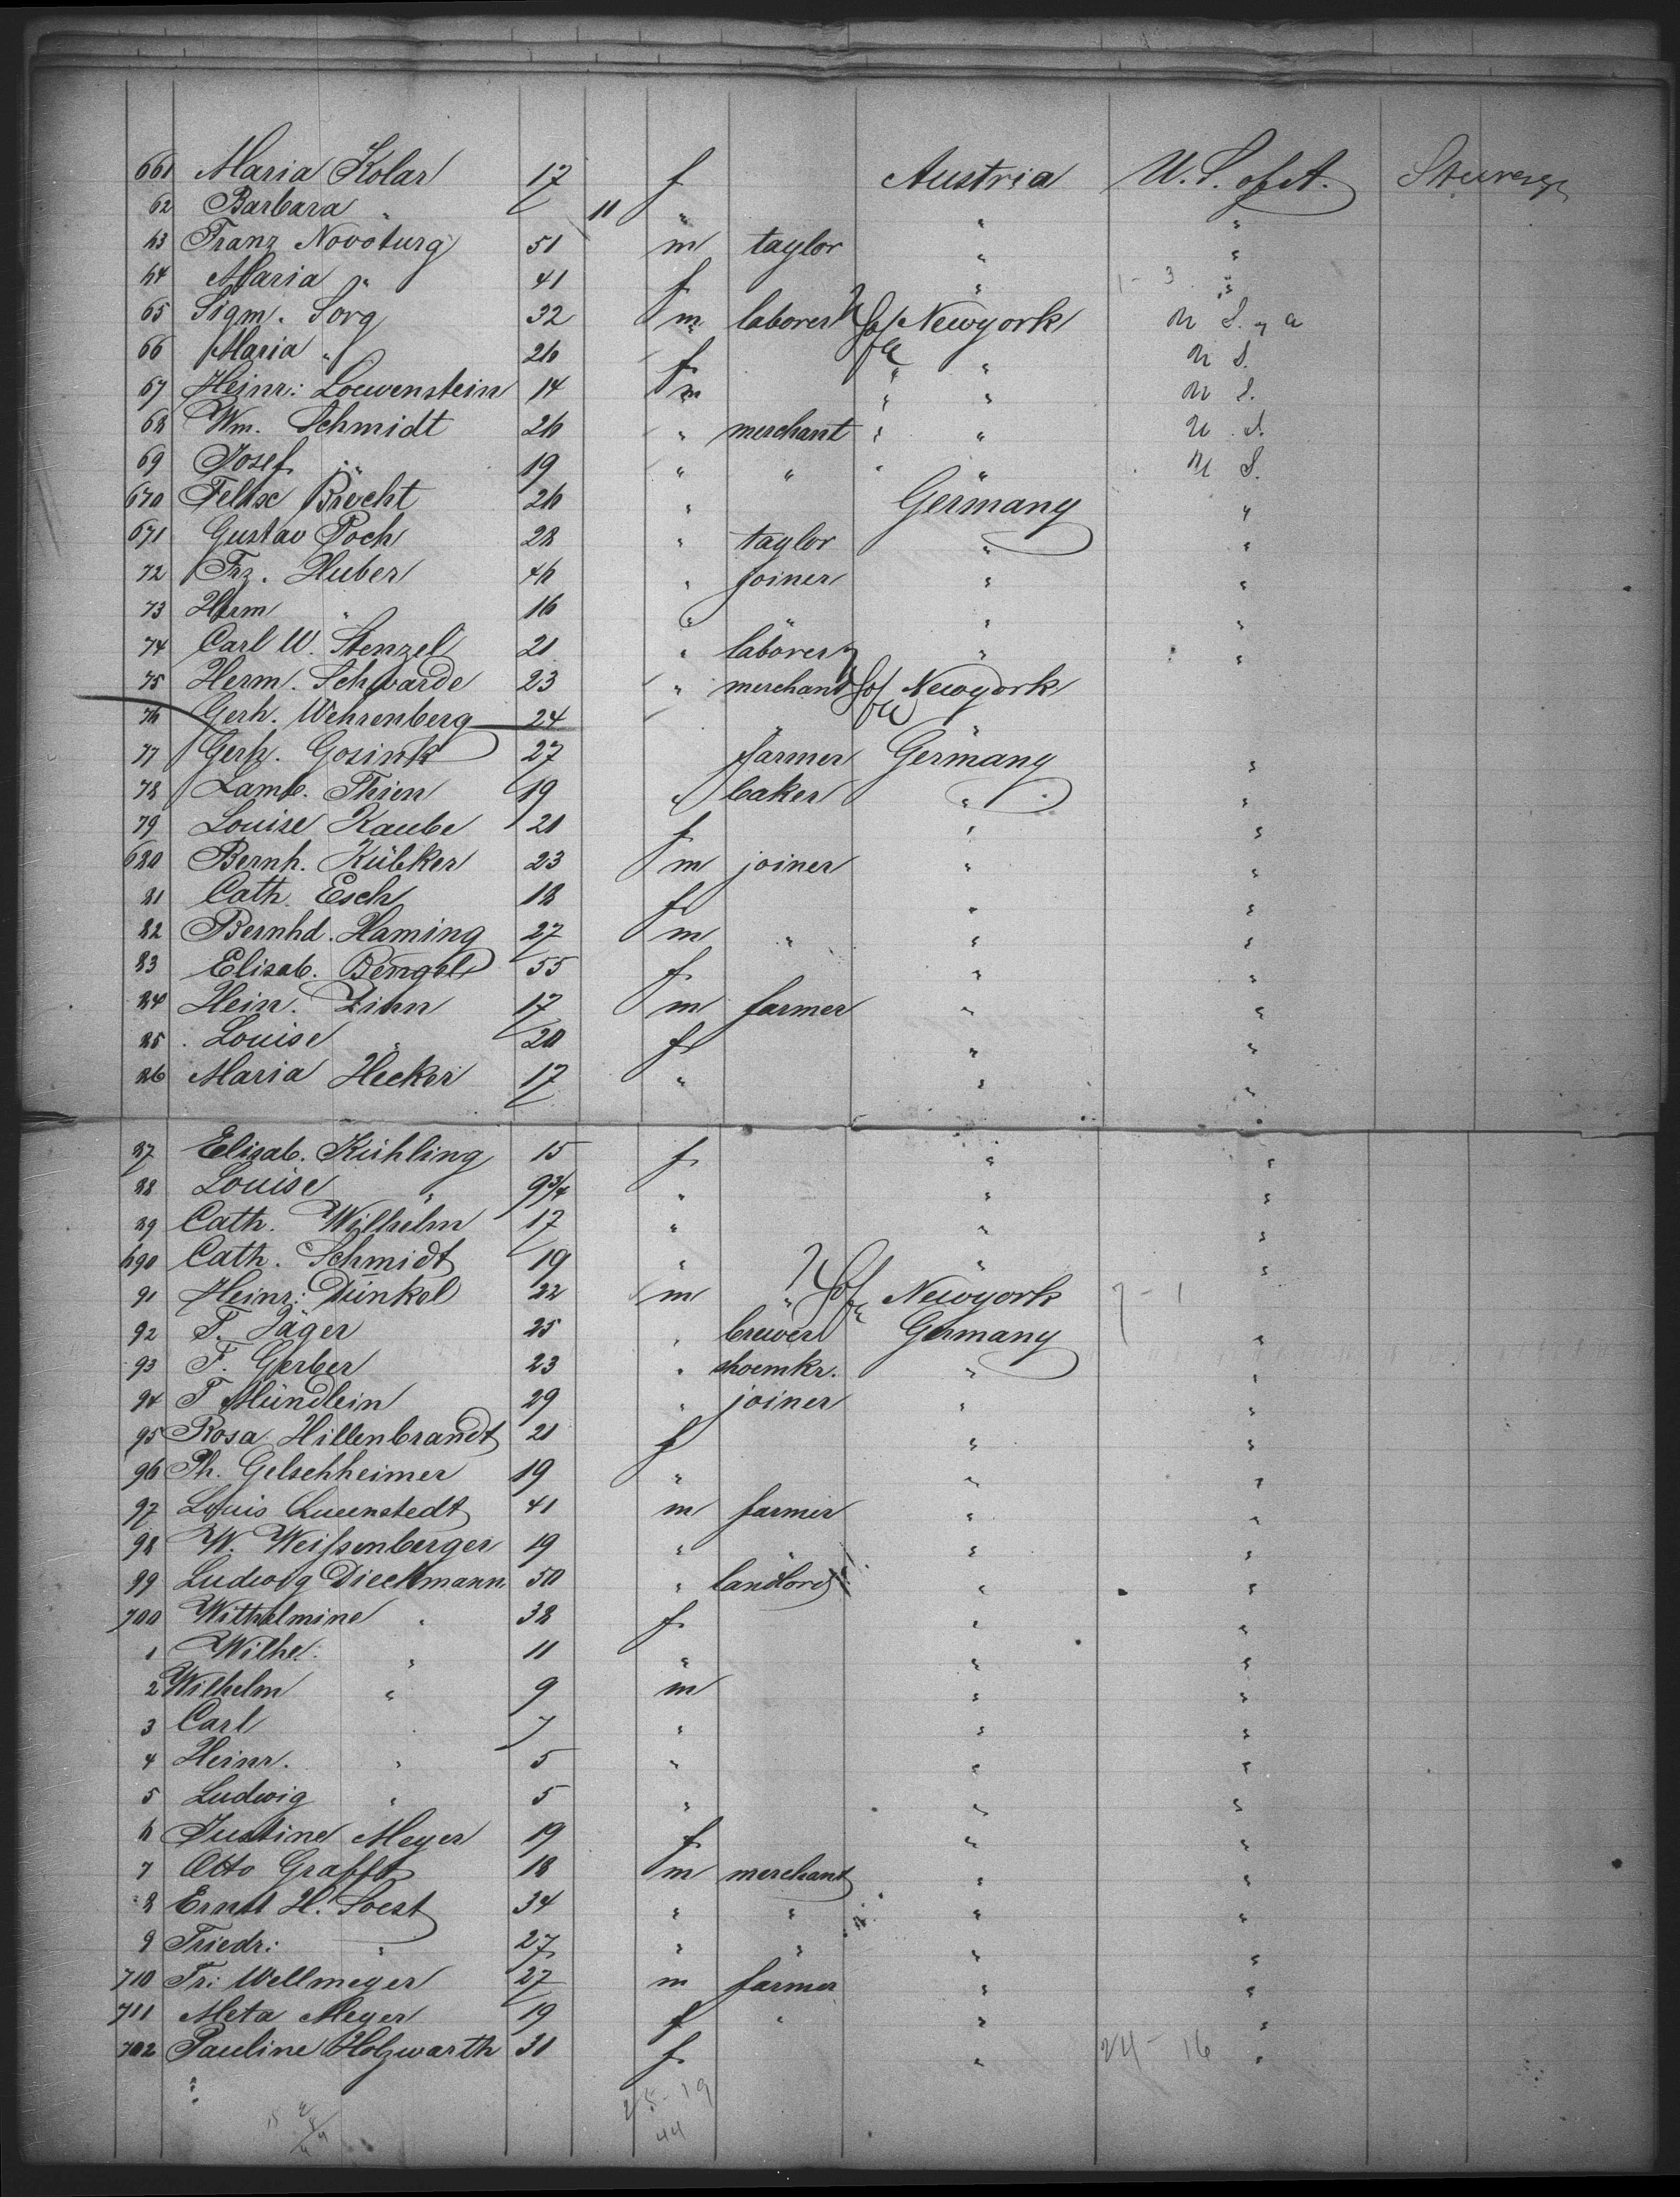 661 Maria Kolar 17 f Austria U. S. of A.
62 Barbara " 11 " " "
63 Franz Novoturg 51 m taylor " "
64 Maria " 41 f " 1 - 3 "
65 Sigm. Sorg 32 m laborer Newyork U S. " a
66 Maria " 26 f " " U S.
67 Heinr: Loewenstein 14 m " " U S.
68 Wm. Schmidt 26 " merchant " " U. S.
69 Josef " 19 " " " " U S.
670 Felix Brecht 26 " Germany "
671 Gustav Poch 28 " taylor " "
72 Frz. Huber 46 " joiner " "
73 Herm " 16 " " " "
74 Carl W. Stenzel 21 " laborer " "
75 Herm. Schwarde 23 " merchant Newyork
76 Gerh. Wehrenberg 24 " "
77 Gerh. Gosink 27 farmer Germany "
78 Lamb. Thien 19 " baker " "
79 Louise Raube 21 f " "
680 Bernh. Kübker 23 m joiner " "
81 Cath. Esch 18 f " "
82 Bernhd. Haming 27 m " " "
83 Elisab. Bengel 55 f " "
84 Hein. Zinn 17 m farmer " "
85 Louise " 20 f " "
86 Maria Hecker 17 " " "
87 Elisab. Kühling 15 f " "
88 Louise " 9 3/4 " " "
89 Cath. Wilhelm 17 " " "
690 Cath. Schmidt 19 " " "
91 Heinr: Dünkel 22 m " Newyork - 1
92 F. Jäger 25 " brewer Germany "
93 F. Gerber 23 " shoemkr. " "
94 F Mündlein 29 " joiner " "
95 Rosa Hillenbrandt 21 f " "
96 Ph. Gelschheimer 19 " " "
97 Louis Luenstedt 41 m farmer " "
98 W. Weißenberger 19 " " " "
99 Ludwig Dieckmann 50 " landlord " "
700 Wilhelmine " 38 f " "
1 Wilhe. " 11 " " "
2 Wilhelm " 9 m " "
3 Carl 7 " " "
4 Heinr. " 5 " " "
5 Ludwig " 5 " " "
6 Justine Meyer 19 f " "
7 Otto Grafft 18 m merchant " "
8 Ernst H. Soest 34 " " " "
9 Friedr: " 27 " " " "
710 Fr: Wellmeyer 27 m farmer " "
711 Meta Meyer 19 f " " "
702 Pauline Holzwarth 31 f " 24 - 16 "
25 - 19
44